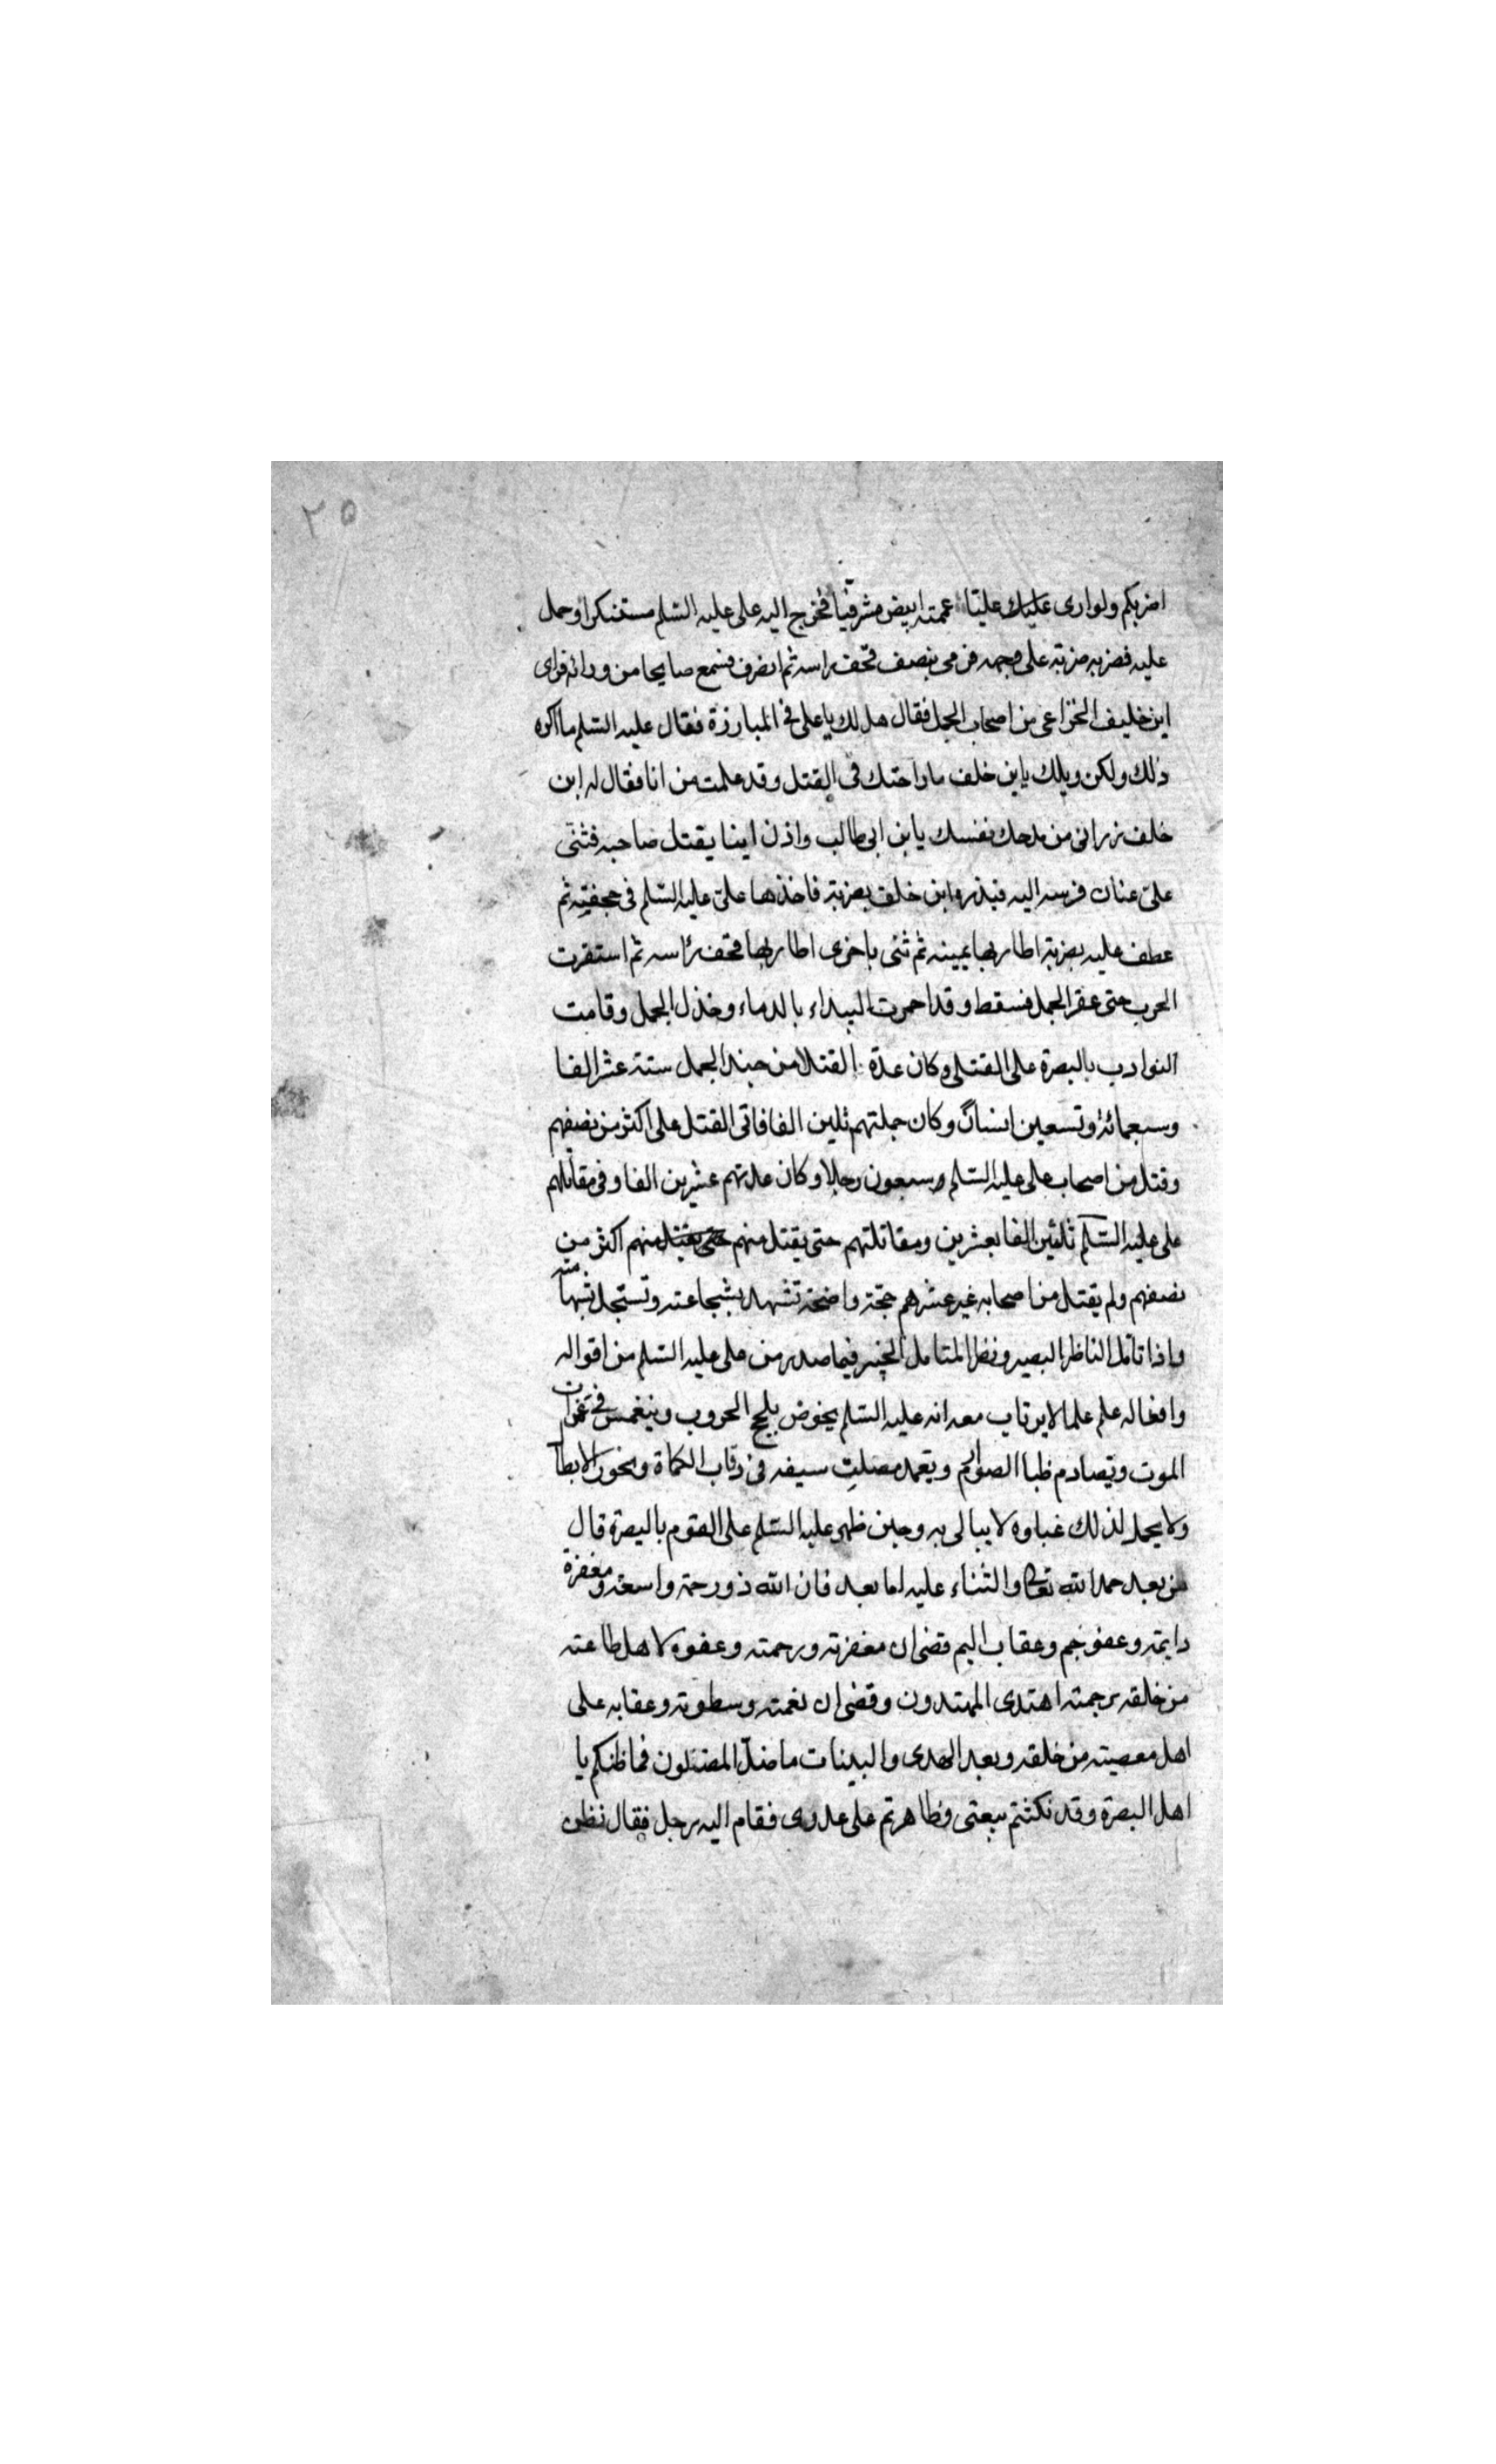 ٢٥
اضربكم ولو ارى عليك عليّا عممته ابيض مشرفيّا فخرج اليه على عليه السّلم مستنكرا وحمل
عليه فضربه ضربة على وجهه فرمى بنصف قحف راسه ثم انصرف فسمع صايحا من ورائه فراى
ابن خليف الخزاعى من اصحاب الجمل فقال هل لك يا على فى المبارزة فقال عليه السّلم ما اكره
ذلك ولكن ويلك يا بن خلف ما راحتك فى القتل وقد علمت من انا فقال له ابن
خلف ذرانى من مدحك نفسك يا بن ابى طالب واذن اينا يقتل صاحبه فثنى
على عنان فرسه اليه فبدره ابن خلف بضربة فاخذها على عليه السّلم فى حجفته ثم
عطف عليه بضربة اطار بها يمينه ثم ثنى باخرى اطار بها قحف راسه ثم استقرت
الحرب حتى عقر الجمل فسقط وقد احمرت البيداء بالدماء وخذل الجمل وقامت
النوادب بالبصرة على القتلى وكان عدة القتلا من جند الجمل ستة عشر الفا
وسبعمائة وتسعين انسانا وكان جملتهم ثلين الفا فاتى القتل على اكثر من نصفهم
وقتل من اصحاب على عليه السّلم وسبعون رجلا وكان عدتهم عشرين الفا وفى مقابلهم
على عليه السّلم ثلثين الفا بعشرين ومقاتلتهم حتى يقتل منهم حتى يقتل منهم اكثر من
نصفهم ولم يقتل من اصحابه غير عشرهم حجّة واضحة تشهد بشجاعته وتسجل بشهامته
واذا تامّل الناظر البصير ونظر المتامل الخبير فيما صدر من على عليه السّلم من اقواله
وافعاله علم علما لا يرتاب معه انه عليه السّلم يخوض بلجج الحروب وينغمس فى غمرات
الموت ويصادم ظبا الصوارم ويتعمد مصلت سيفه فى رقاب الكماة ونحور الابطا
ولا يحمل لذلك غباوه لا يبالى به وحين ظهر عليه السّلم على القوم بالبصرة قال
من بعد حمد الله تعالى والثناء عليه اما بعد فان الله ذو رحمة واسعة ومغفرة
دايمة وعفو جم وعقاب اليم قضى ان مغفرته ورحمته وعفوه لاهل طاعته
من خلقه برحمته اهتدى المهتدون وقضى ان نغمته وسطوته وعقابه على
اهل معصيته من خلقه وبعد الهدى والبينات ما ضلّ المضلون فما ظنكم يا
اهل البصرة وقد نكثتم بيعتى وظاهرتم على عدوى فقام اليه رجل فقال نظن